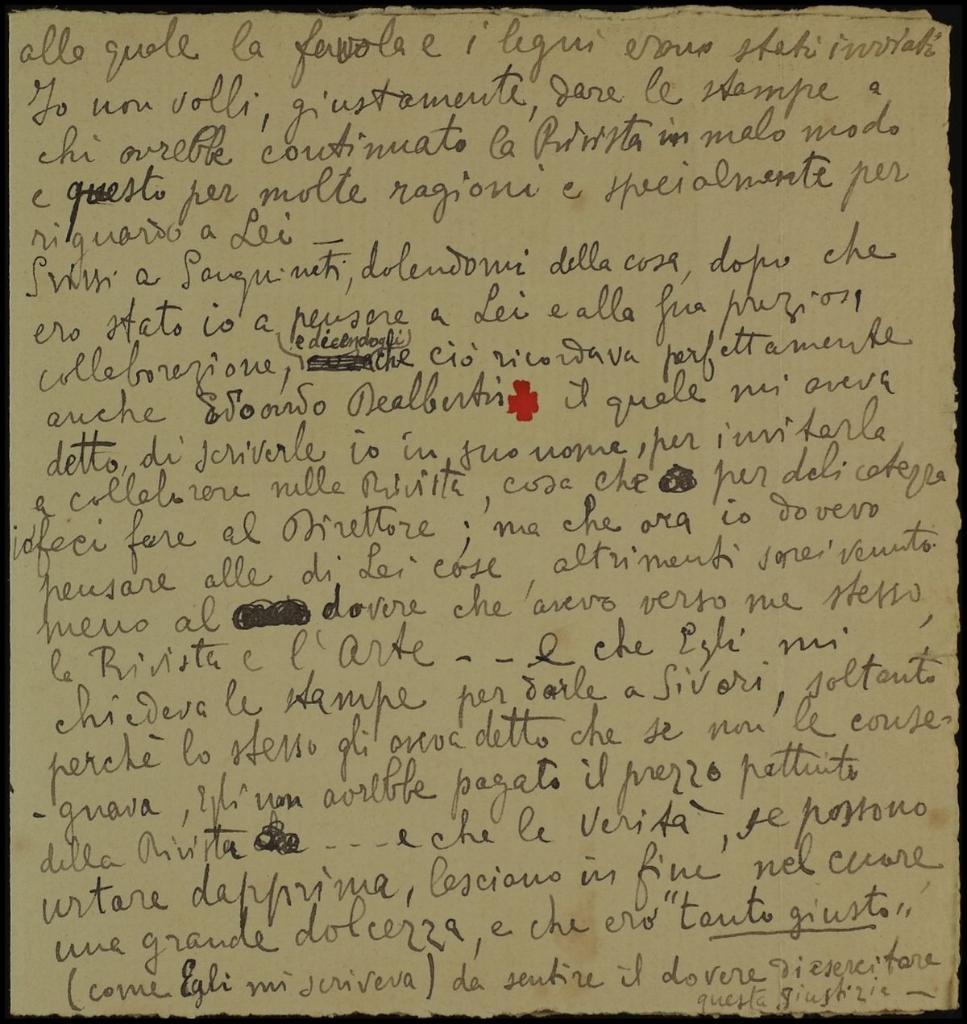 alla quale la favola e i legni erano stati inviati
Io non volli, giustamente, dare le stampe a
chi avrebbe continuato la Rivista in malo modo
e questo per molte ragioni e specialmente per
riguardo a Lei —
Scrissi a Sanguineti, dolendomi della cosa, dopo che
ero stato io a pensare a Lei e alla Sua preziosa
e dicendogli
collaborazione, che ciò ricordava perfettamente
anche Edoardo Dealbertis il quale mi aveva
detto, di scriverle io in suo nome, per invitarla
a collaborare nella Rivista, cosa che per delicatezza
io feci fare al Direttore; ma che ora io dovevo
pensare alle di Lei cose, altrimenti sarei venuto
meno al dovere che avevo verso me stesso,
la Rivista e l'Arte - - - e che Egli mi
chiedeva le stampe per darle a Sivori, soltanto
perchè lo stesso gli aveva detto che se non le conse-
-gnava, Egli non avrebbe pagato il prezzo pattuito
della Rivista - - - e che le Verità, se possono
urtare dapprima, lasciano in fine nel cuore
una grande dolcezza, e che ero "tanto giusto"
(come Egli mi scriveva) da sentire il dovere di esercitare
questa giustizia —